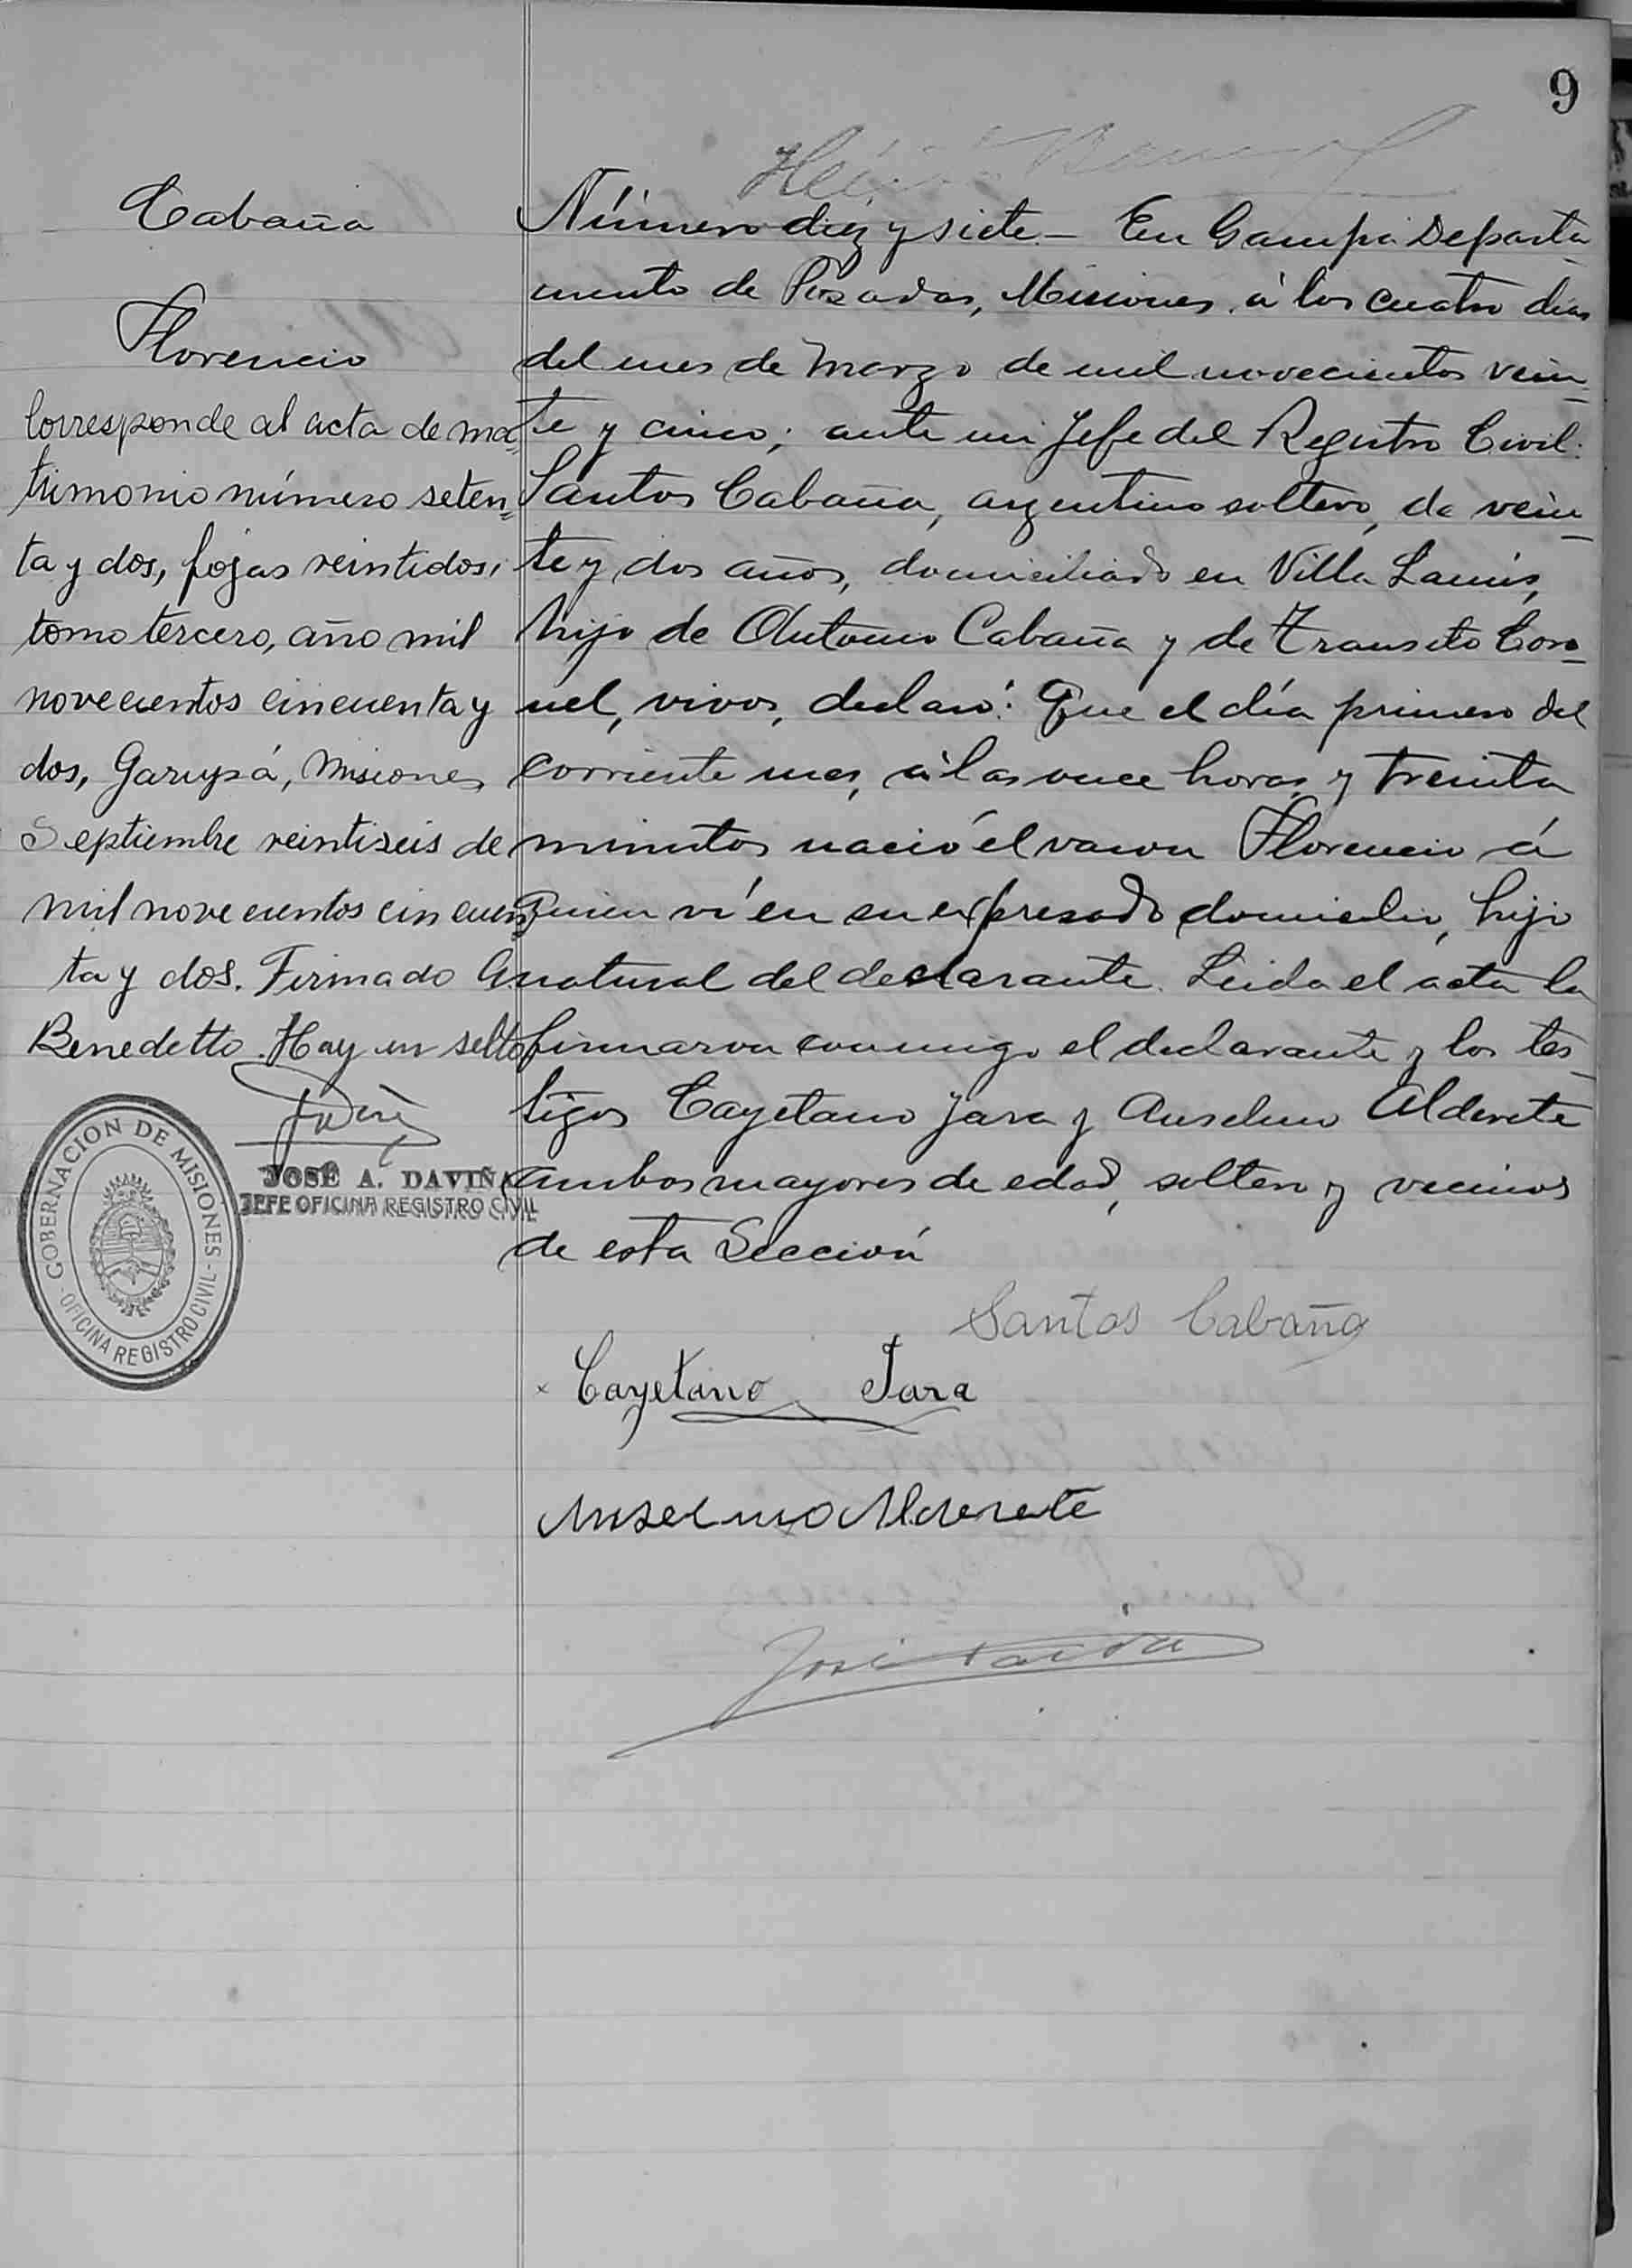 9
Cabaña
Florencio
Corresponde al acta de ma=
trimonio número seten=
ta y dos, fojas veintidos,
tomo tercero, año mil
novecientos cincuenta y
dos, Garupá, Misiones
Septiembre veintiseis de
mil novecientos cincuen=
ta y dos. Firmado A
Benedetto. Hay un sello
JOSÉ A. DAVIÑA
JEFE OFICINA REGISTRO CIVIL
GOBERNACION DE MISIONES
- OFICINA REGISTRO CIVIL -
Número diez y siete - En Garupá Departa
mento de Posadas, Misiones, á los cuatro dias
del mes de Marzo de mil novecientos vein=
te y cinco; ante mi Jefe del Registro Civil:
Santos Cabaña, argentino soltero, de vein
te y dos años, domiciliado en Villa Lanús,
hijo de Antonio Cabaña y de Transito Coro=
nel, vivos, declaró: Que el día primero del
corriente mes, á las once horas y treinta
minutos nació el varon Florencio á
quien ví en su expresado domicilio, hijo
natural del declarante. Leida el acta la
firmaron conmigo el declarante y los tes
tigos Cayetano Jara y Anselmo Alderete
ambos mayores de edad, soltero y vecinos
de esta Sección
Santos Cabaña
Cayetano Jara
Anselmo Alderete